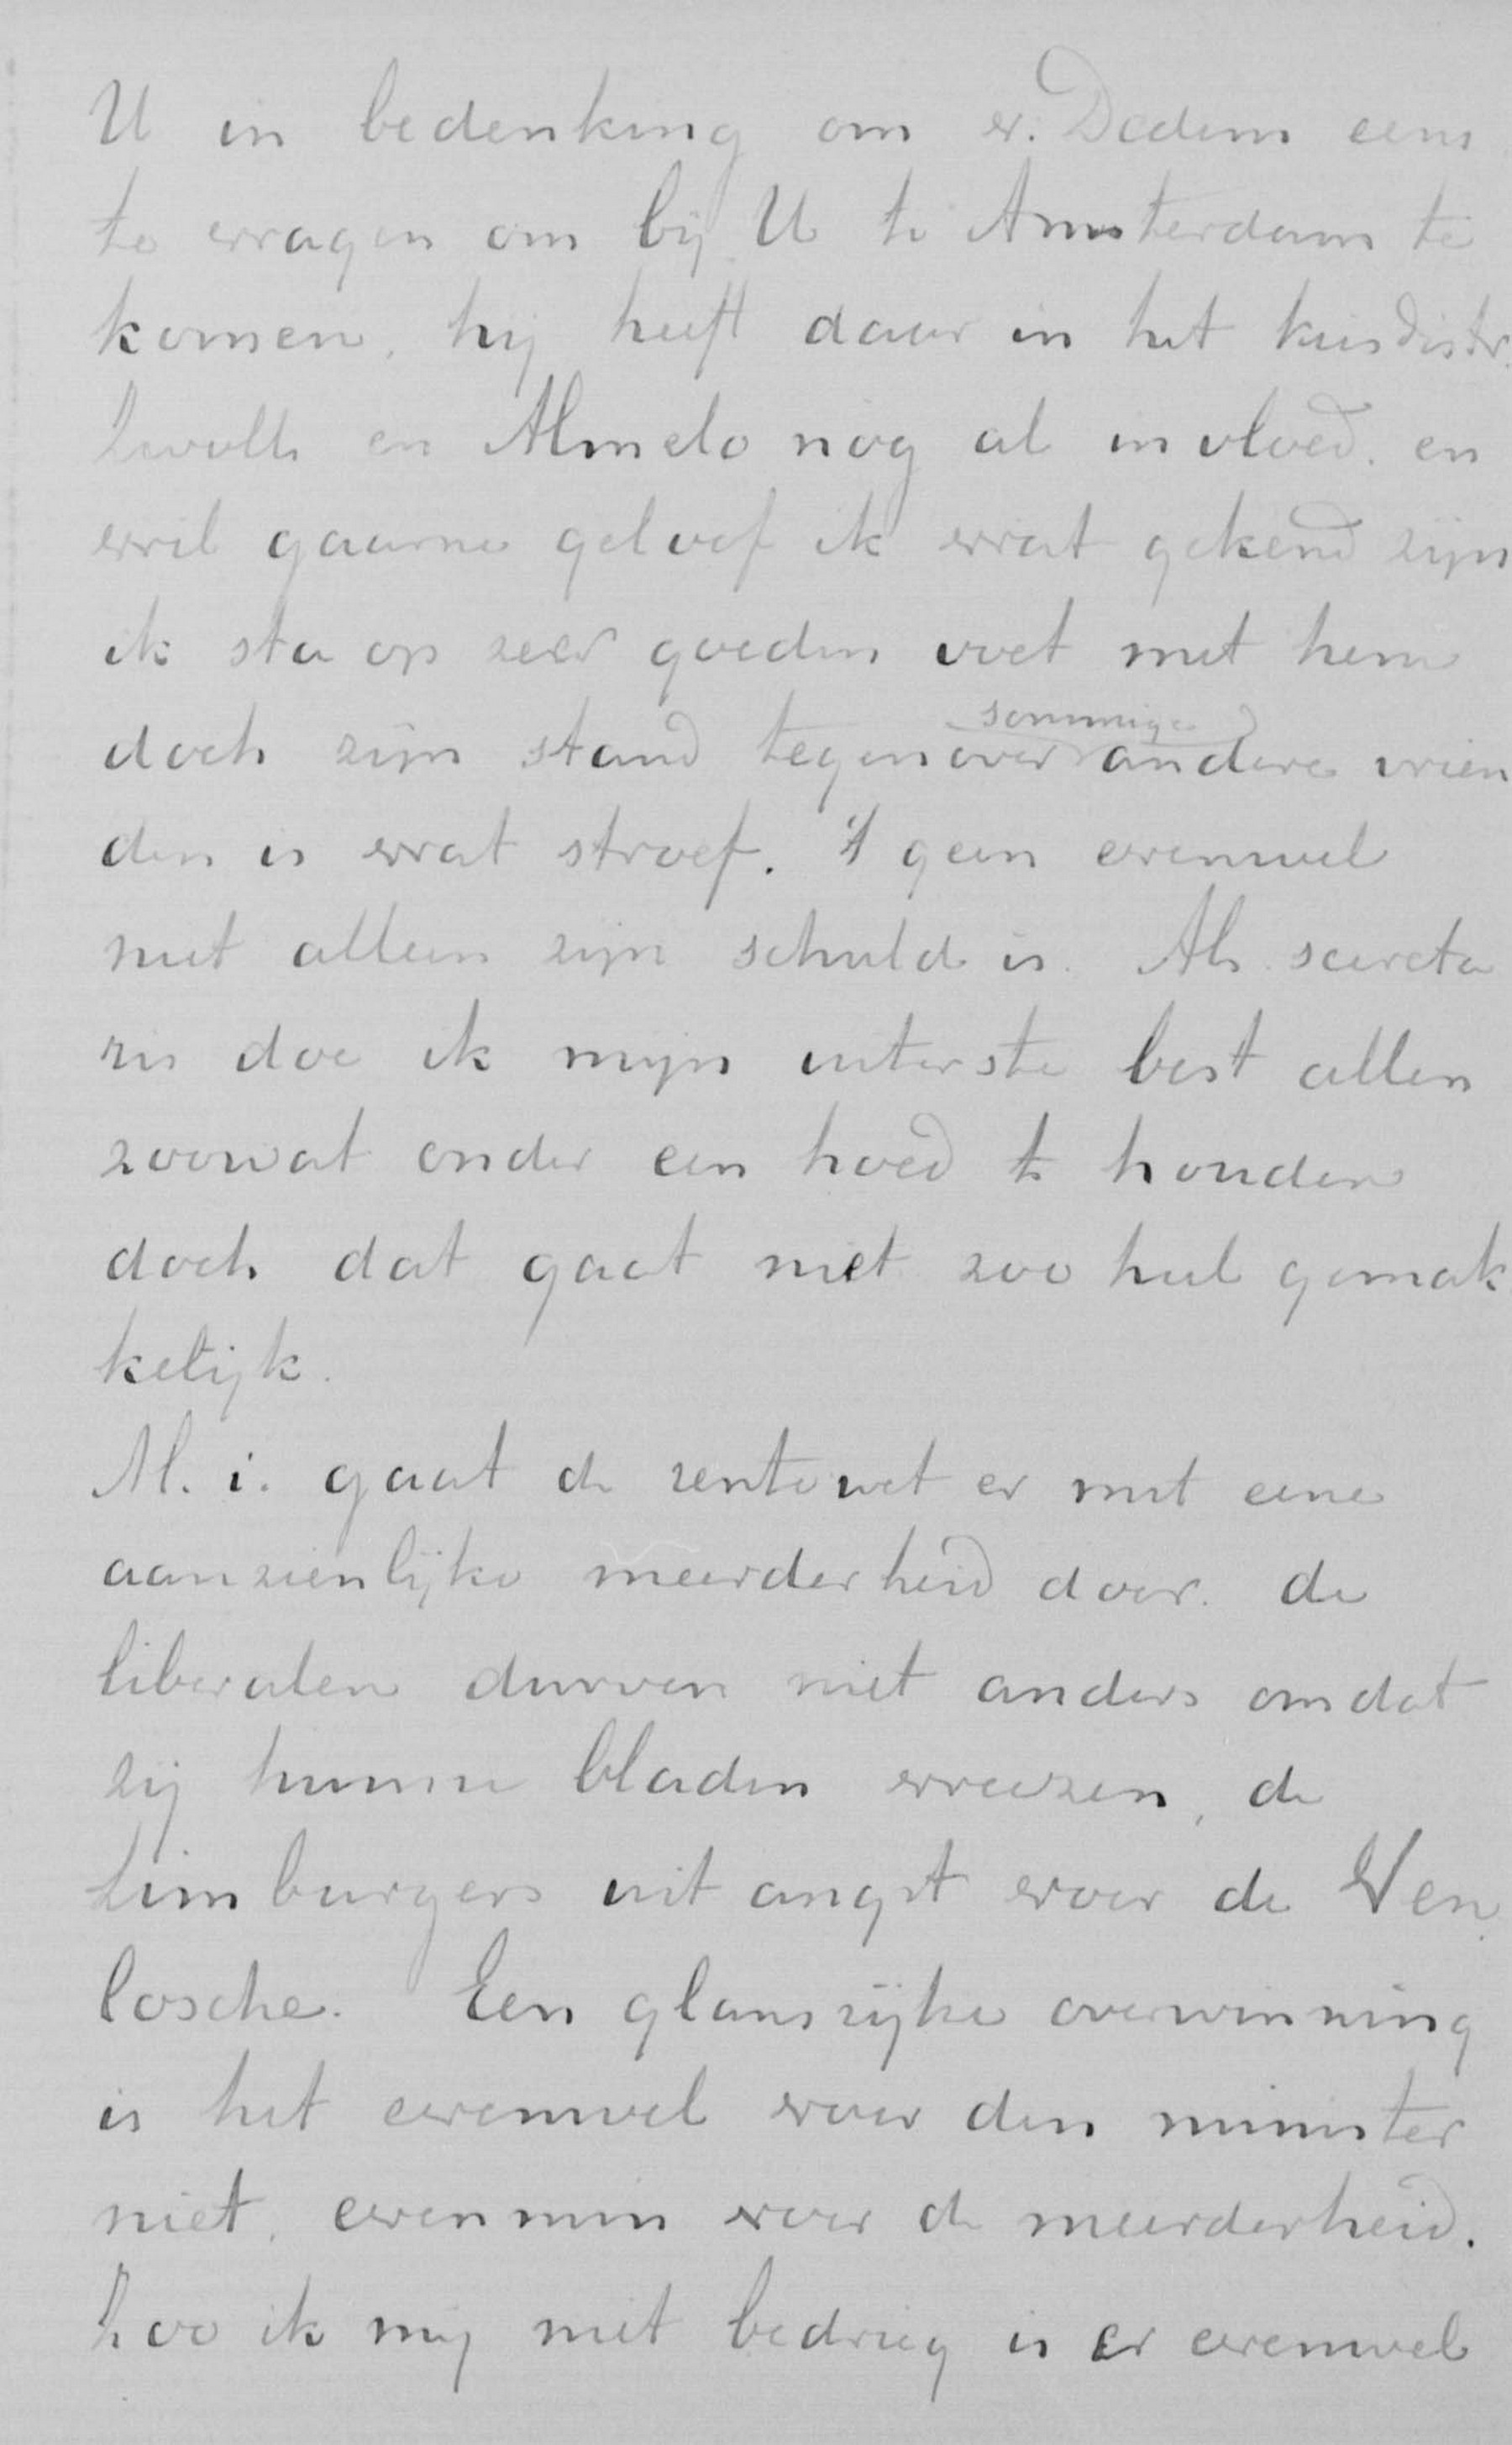 U in bedenking om v. Dedem eens
te vragen om bij U te Amsterdam te
komen, hij heeft daar in het kiesdistr.
Zwolle en Almelo nog al invloed. en
wil gaarne geloof ik wat gekend zijn
ik sta op zeer goeden voet met hem
doch zijn stand tegenover sommige andere vrien
den is wat stroef. 't geen evenwel
niet alleen zijn schuld is. Als secreta
ris doe ik mijn uiterste best allen
zoowat onder een hoed te houden
doch dat gaat niet zoo heel gemak
kelijk.
M. i. gaat de rentewet er met eene
aanzienlijke meerderheid door. de
liberalen durven niet anders omdat
zij hunne bladen vreezen, de
Limburgers uit angst voor de Ven
losche. Een glansrijke overwinning
is het evenwel voor den minister
niet, evenmin voor de meerderheid.
Zoo ik mij niet bedrieg is er evenwel